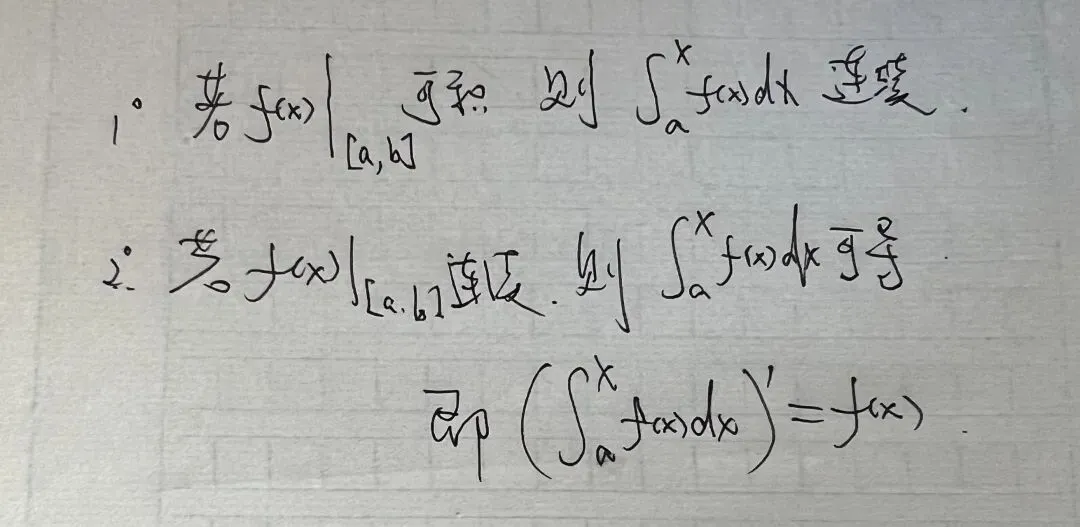 1° 若 f(x)|[a,b] 可积 则 ∫ₐˣ f(x)dx 连续.
2° 若 f(x)|[a,b] 连续. 则 ∫ₐˣ f(x)dx 可导.
即 (∫ₐˣ f(x)dx)' = f(x).